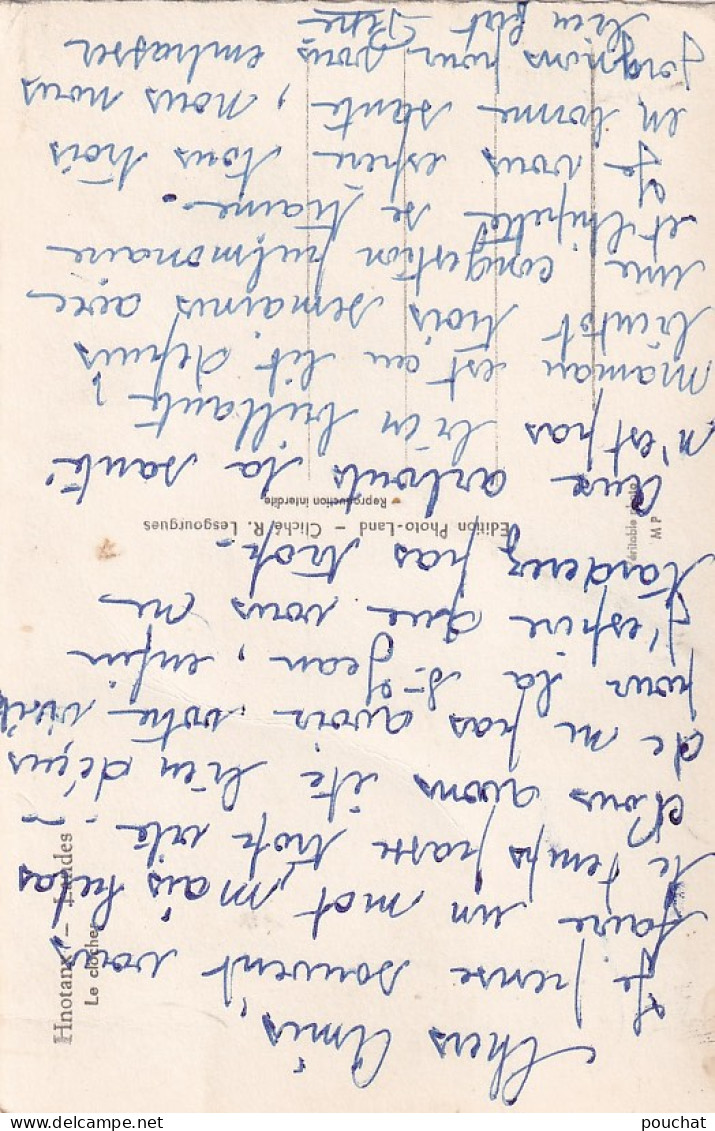 Chers Amis,
Je pense souvent vous
faire un mot, mais helas
le temps passe trop vite.
Nous avons été bien déçus
de ne pas avoir votre visite
pour la St Jean, enfin
j'espère que vous ne
tarderez pas trop.
Chez nous la santé
n'est pas bien brillante,
maman est au lit depuis
bientôt trois semaines avec
une congestion pulmonaire
et se traine.
Je vous espère tous trois
en bonne santé, nous nous
joignons pour vous embrasser
bien fort
Hinotanx - Landes
Le clocher
Edition Photo-Land - Cliché R. Lesgourgues
Reproduction interdite
Véritable photo
M P
pouchat